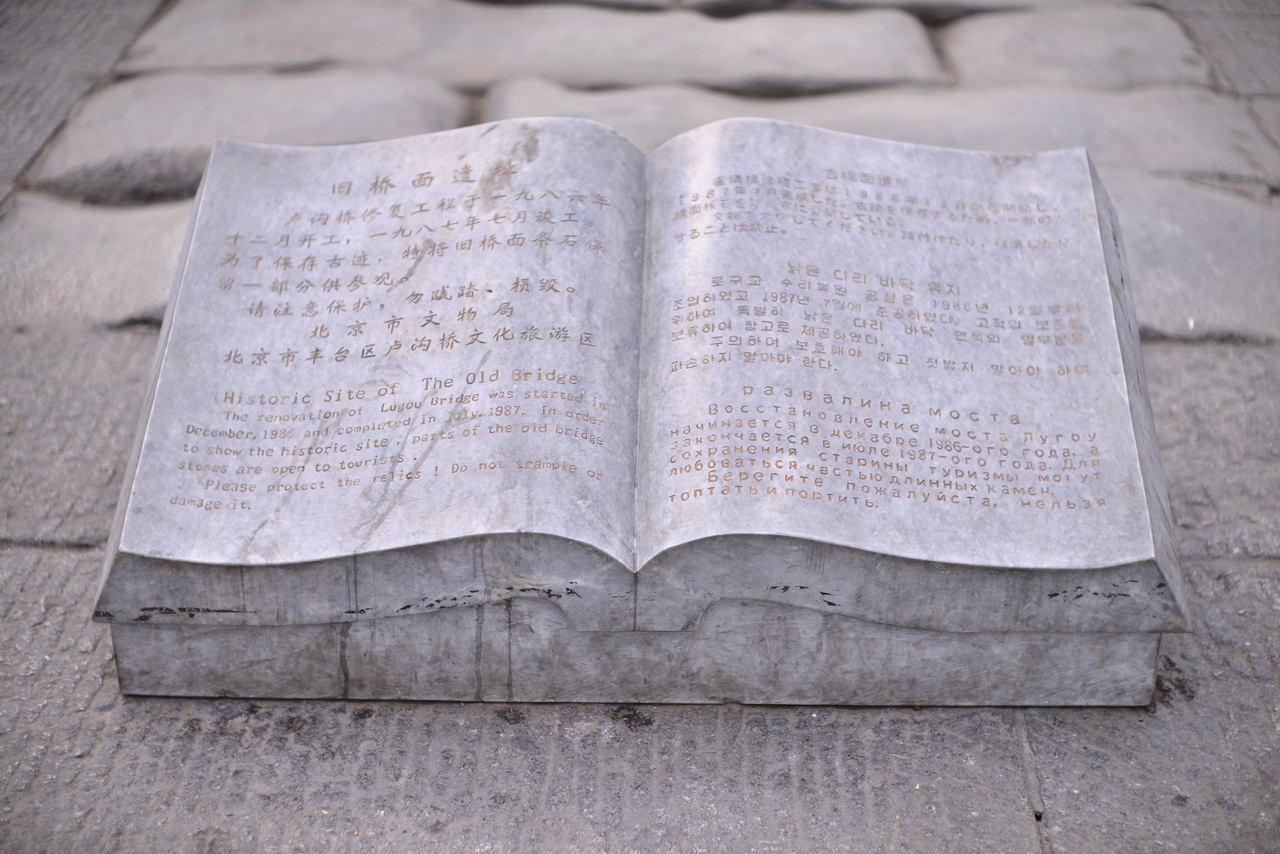 旧桥面遗
卢沟桥修复工程于一九八六年
十二月开工，一九八七年七月竣工，
为了保存古迹，特将旧桥面条石保
留一部分供参观。
请注意保护，勿践踏、损毁。
北京市文物局
北京市丰台区卢沟桥文化旅游区
Historic Site of The Old Bridge
The renovation of Lugou Bridge was started in
December, 1986 and completed in July, 1987. In order
to show the historic site, parts of the old bridge
stones are open to tourists.
Please protect the relics! Do not trample or
damage it.
古橋面遺
することは禁止。
낡은 다리 바닥 유지
로구교 수리복원 공정은 1986년 12월부터
조의하였고 1987년 7월에 준공하였다. 고적의 보존을
위하여 특별히 낡은 다리 바닥 연석의 일부분을
보류하여 참고로 제공하였다.
주의하여 보호해야 하고 짓밟지 말아야 하며
파손하지 말아야 한다.
развалина моста
Восстановление моста Лугоу
начинается в декабре 1986-ого года, а
закончается в июле 1987-ого года. Для
сохранения старины туризмы могут
любоваться частью длинных камен.
Берегите пожалуйста, нельзя
топтать и портить.